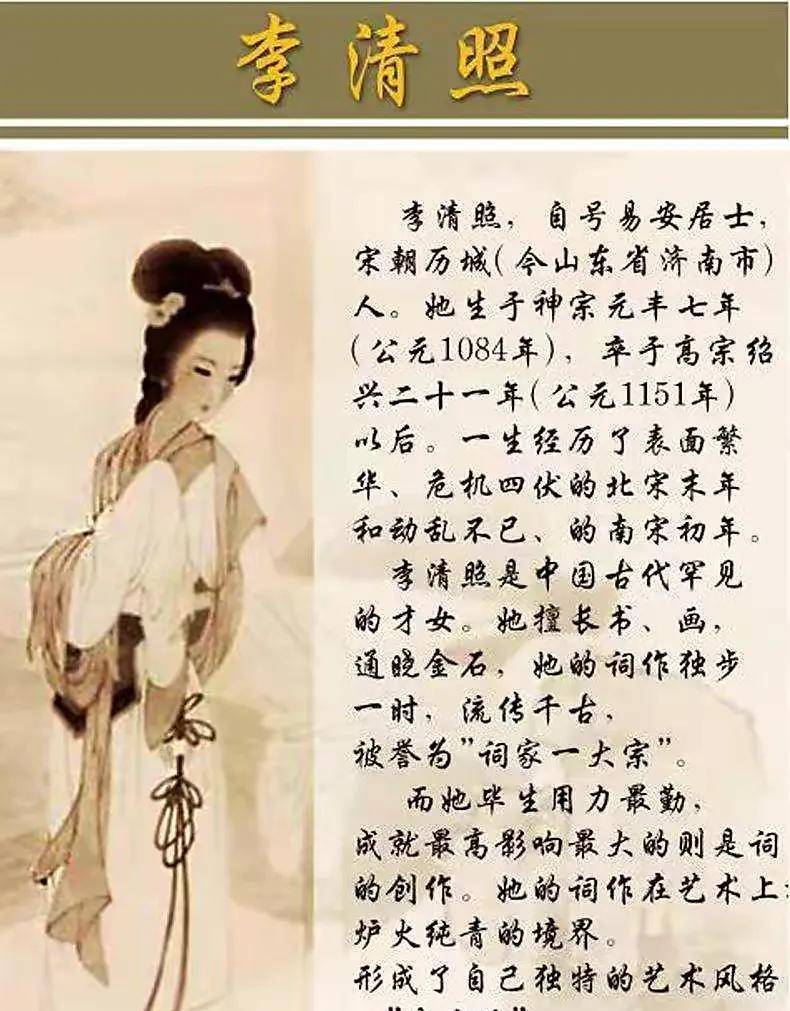 李清照
李清照，自号易安居士，
宋朝历城(今山东省济南市)
人。她生于神宗元丰七年
(公元1084年)，卒于高宗绍
兴二十一年(公元1151年)
以后。一生经历了表面繁
华、危机四伏的北宋末年
和动乱不已、的南宋初年。
李清照是中国古代罕见
的才女。她擅长书、画，
通晓金石，她的词作独步
一时，流传千古，
被誉为"词家一大宗"。
而她毕生用力最勤，
成就最高影响最大的则是词
的创作。她的词作在艺术上
炉火纯青的境界。
形成了自己独特的艺术风格